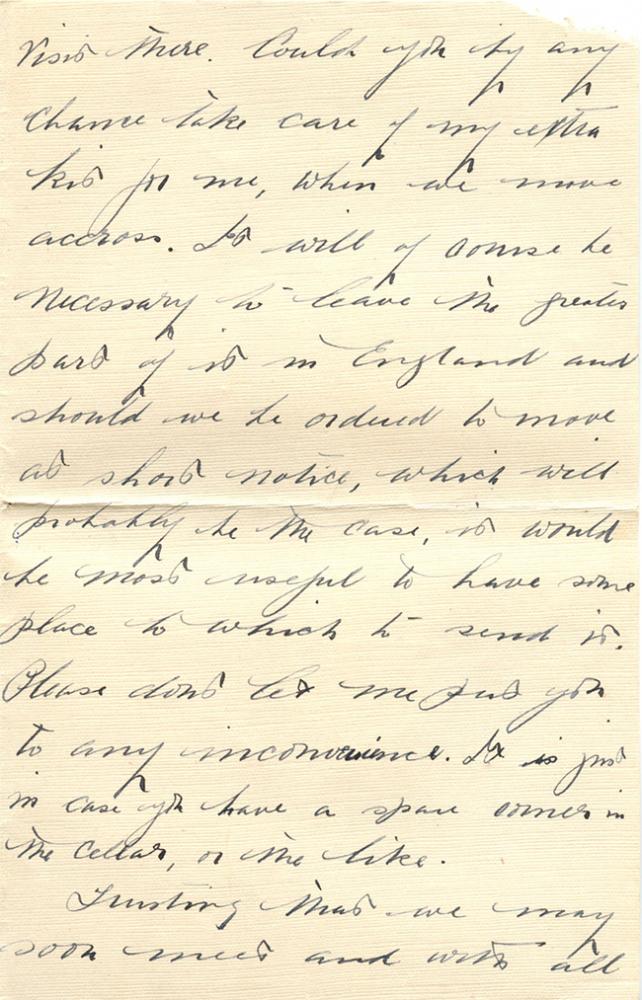 visit there. Could you by any
chance take care of my extra
kit for me, when we move
accross. It will of course be
necessary to leave the greater
part of it in England and
should we be ordered to move
at short notice, which will
probably be the case, it would
be most useful to have some
place to which to send it.
Please dont let me put you
to any inconvenience. It is just
in case you have a spare corner in
the cellar, or the like.
Trusting that we may
soon meet and with all